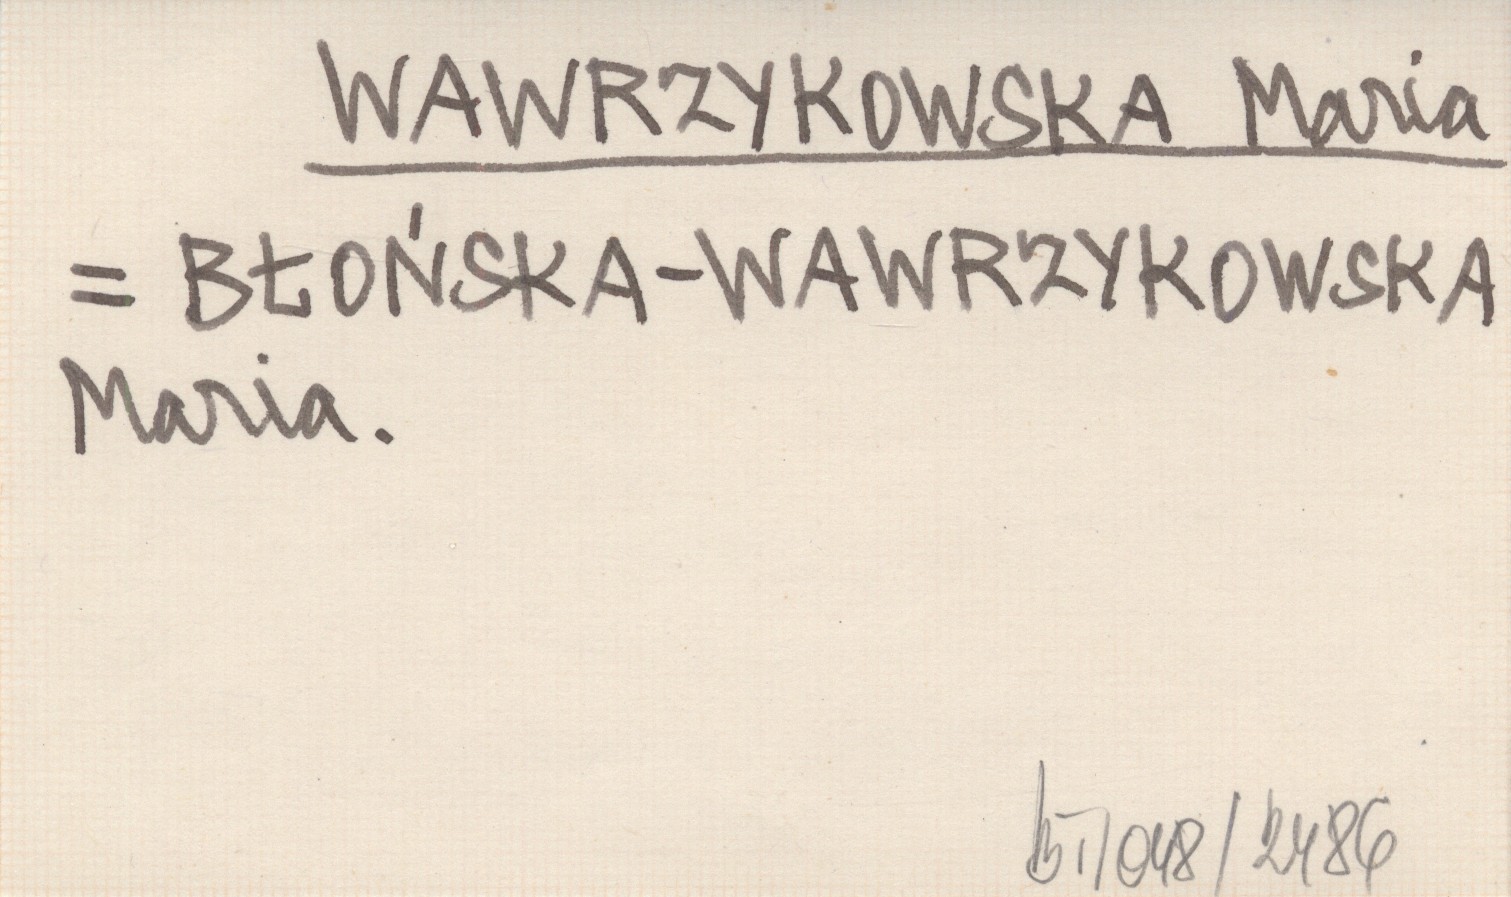 WAWRZYKOWSKA Maria
= BŁOŃSKA-WAWRZYKOWSKA
Maria.
/2486